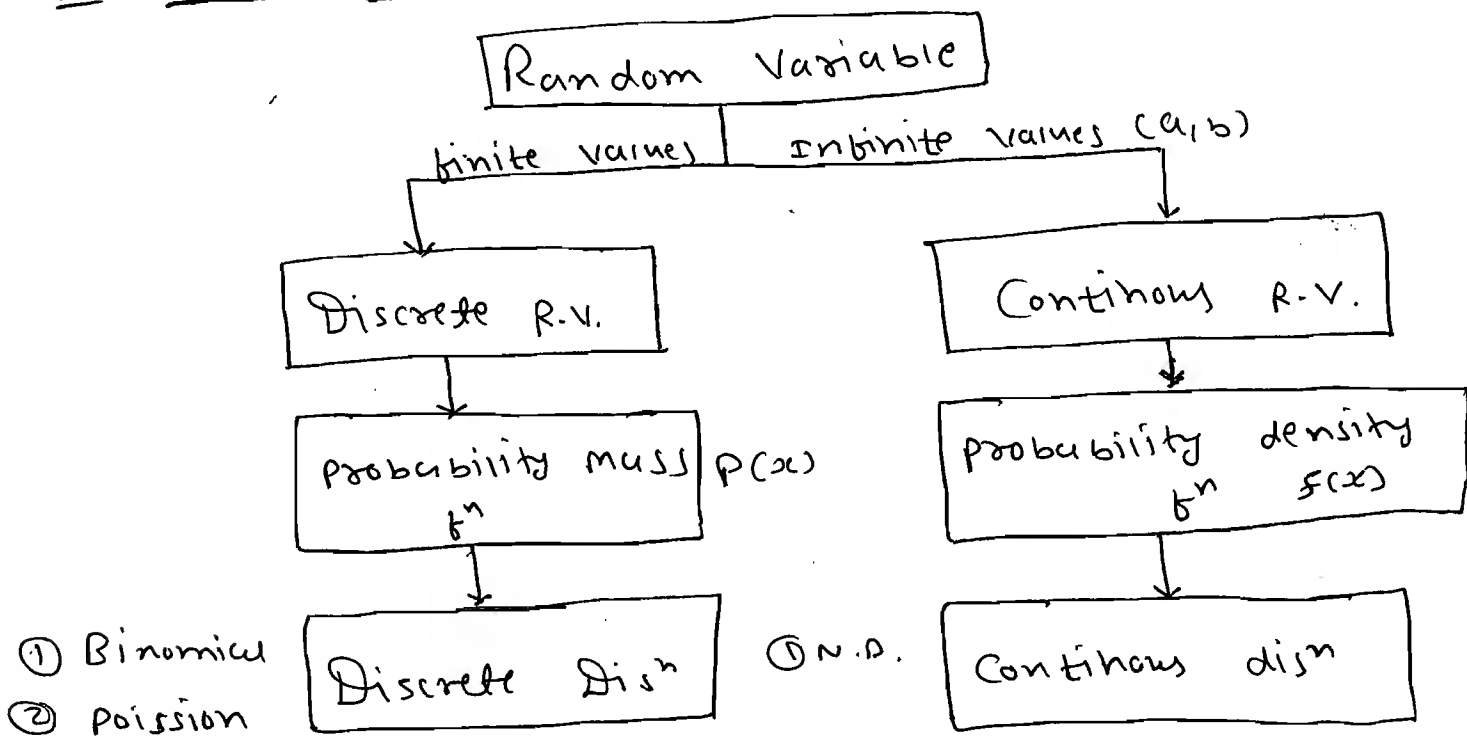 Random Variable
finite values Infinite values (a, b)
Discrete R.V.
Continous R.V.
probability mass
fⁿ
P(x)
probability density
fⁿ f(x)
① Binomial
② poission
Discrete Disⁿ
① N.D.
Continous disⁿ